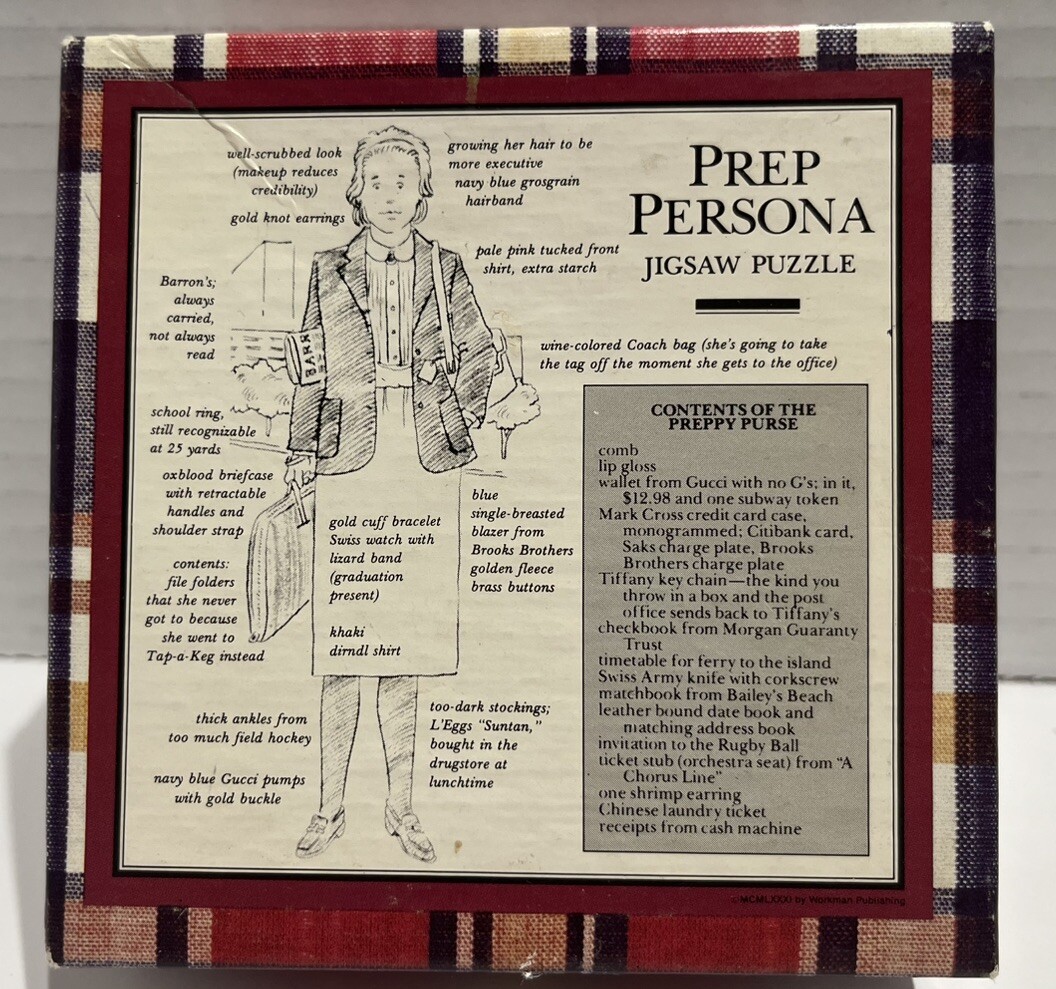 PREP
PERSONA
JIGSAW PUZZLE
well-scrubbed look
(makeup reduces
credibility)
gold knot earrings
growing her hair to be
more executive
navy blue grosgrain
hairband
pale pink tucked front
shirt, extra starch
Barron's;
always
carried,
not always
read
BARR
wine-colored Coach bag (she's going to take
the tag off the moment she gets to the office)
school ring,
still recognizable
at 25 yards
oxblood briefcase
with retractable
handles and
shoulder strap
contents:
file folders
that she never
got to because
she went to
Tap-a-Keg instead
gold cuff bracelet
Swiss watch with
lizard band
(graduation
present)
khaki
dirndl shirt
blue
single-breasted
blazer from
Brooks Brothers
golden fleece
brass buttons
thick ankles from
too much field hockey
navy blue Gucci pumps
with gold buckle
too-dark stockings;
L'Eggs "Suntan,"
bought in the
drugstore at
lunchtime
CONTENTS OF THE
PREPPY PURSE
comb
lip gloss
wallet from Gucci with no G's; in it,
$12.98 and one subway token
Mark Cross credit card case,
monogrammed; Citibank card,
Saks charge plate, Brooks
Brothers charge plate
Tiffany key chain—the kind you
throw in a box and the post
office sends back to Tiffany's
checkbook from Morgan Guaranty
Trust
timetable for ferry to the island
Swiss Army knife with corkscrew
matchbook from Bailey's Beach
leather bound date book and
matching address book
invitation to the Rugby Ball
ticket stub (orchestra seat) from "A
Chorus Line"
one shrimp earring
Chinese laundry ticket
receipts from cash machine
© MCMLXXXI by Workman Publishing